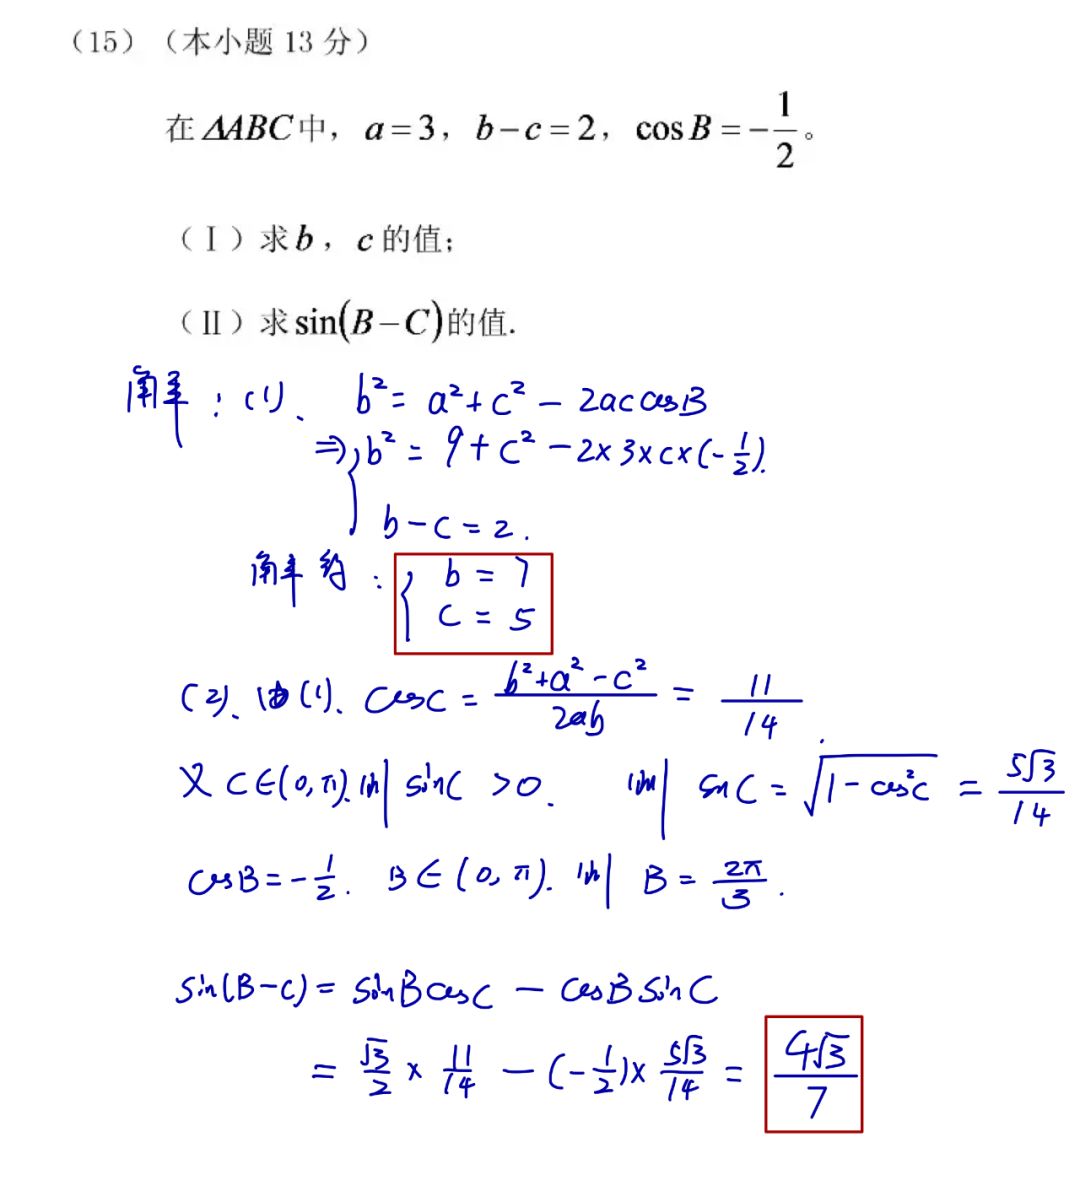 (15) (本小题 13 分)
在 ΔABC 中, a = 3, b − c = 2, cos B = −1/2。
(Ⅰ) 求 b, c 的值;
(Ⅱ) 求 sin(B − C) 的值.
解:(1)、 b² = a² + c² − 2ac cosB
⇒ { b² = 9 + c² − 2×3×c×(−1/2).
b − c = 2.
解得: { b = 7
c = 5
(2)、由(1)、cosC = (b²+a²−c²)/2ab = 11/14.
又 C∈(0,π).则 sinC >0. 则 sinC = √(1−cos²C) = 5√3/14
cosB = −1/2. B∈(0,π). 则 B = 2π/3.
sin(B−C) = sinBcosC − cosBsinC
= √3/2 × 11/14 − (−1/2)× 5√3/14 = 4√3/7